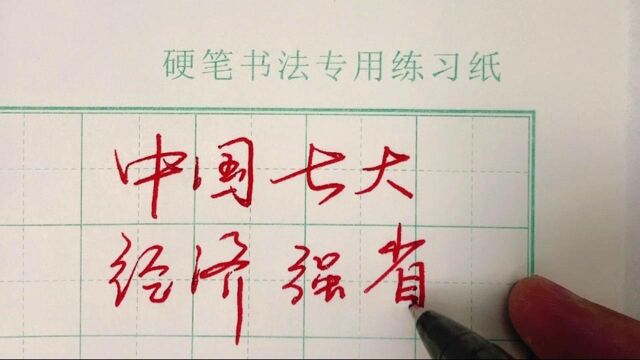 硬笔书法专用练习纸
中国七大
经济强省